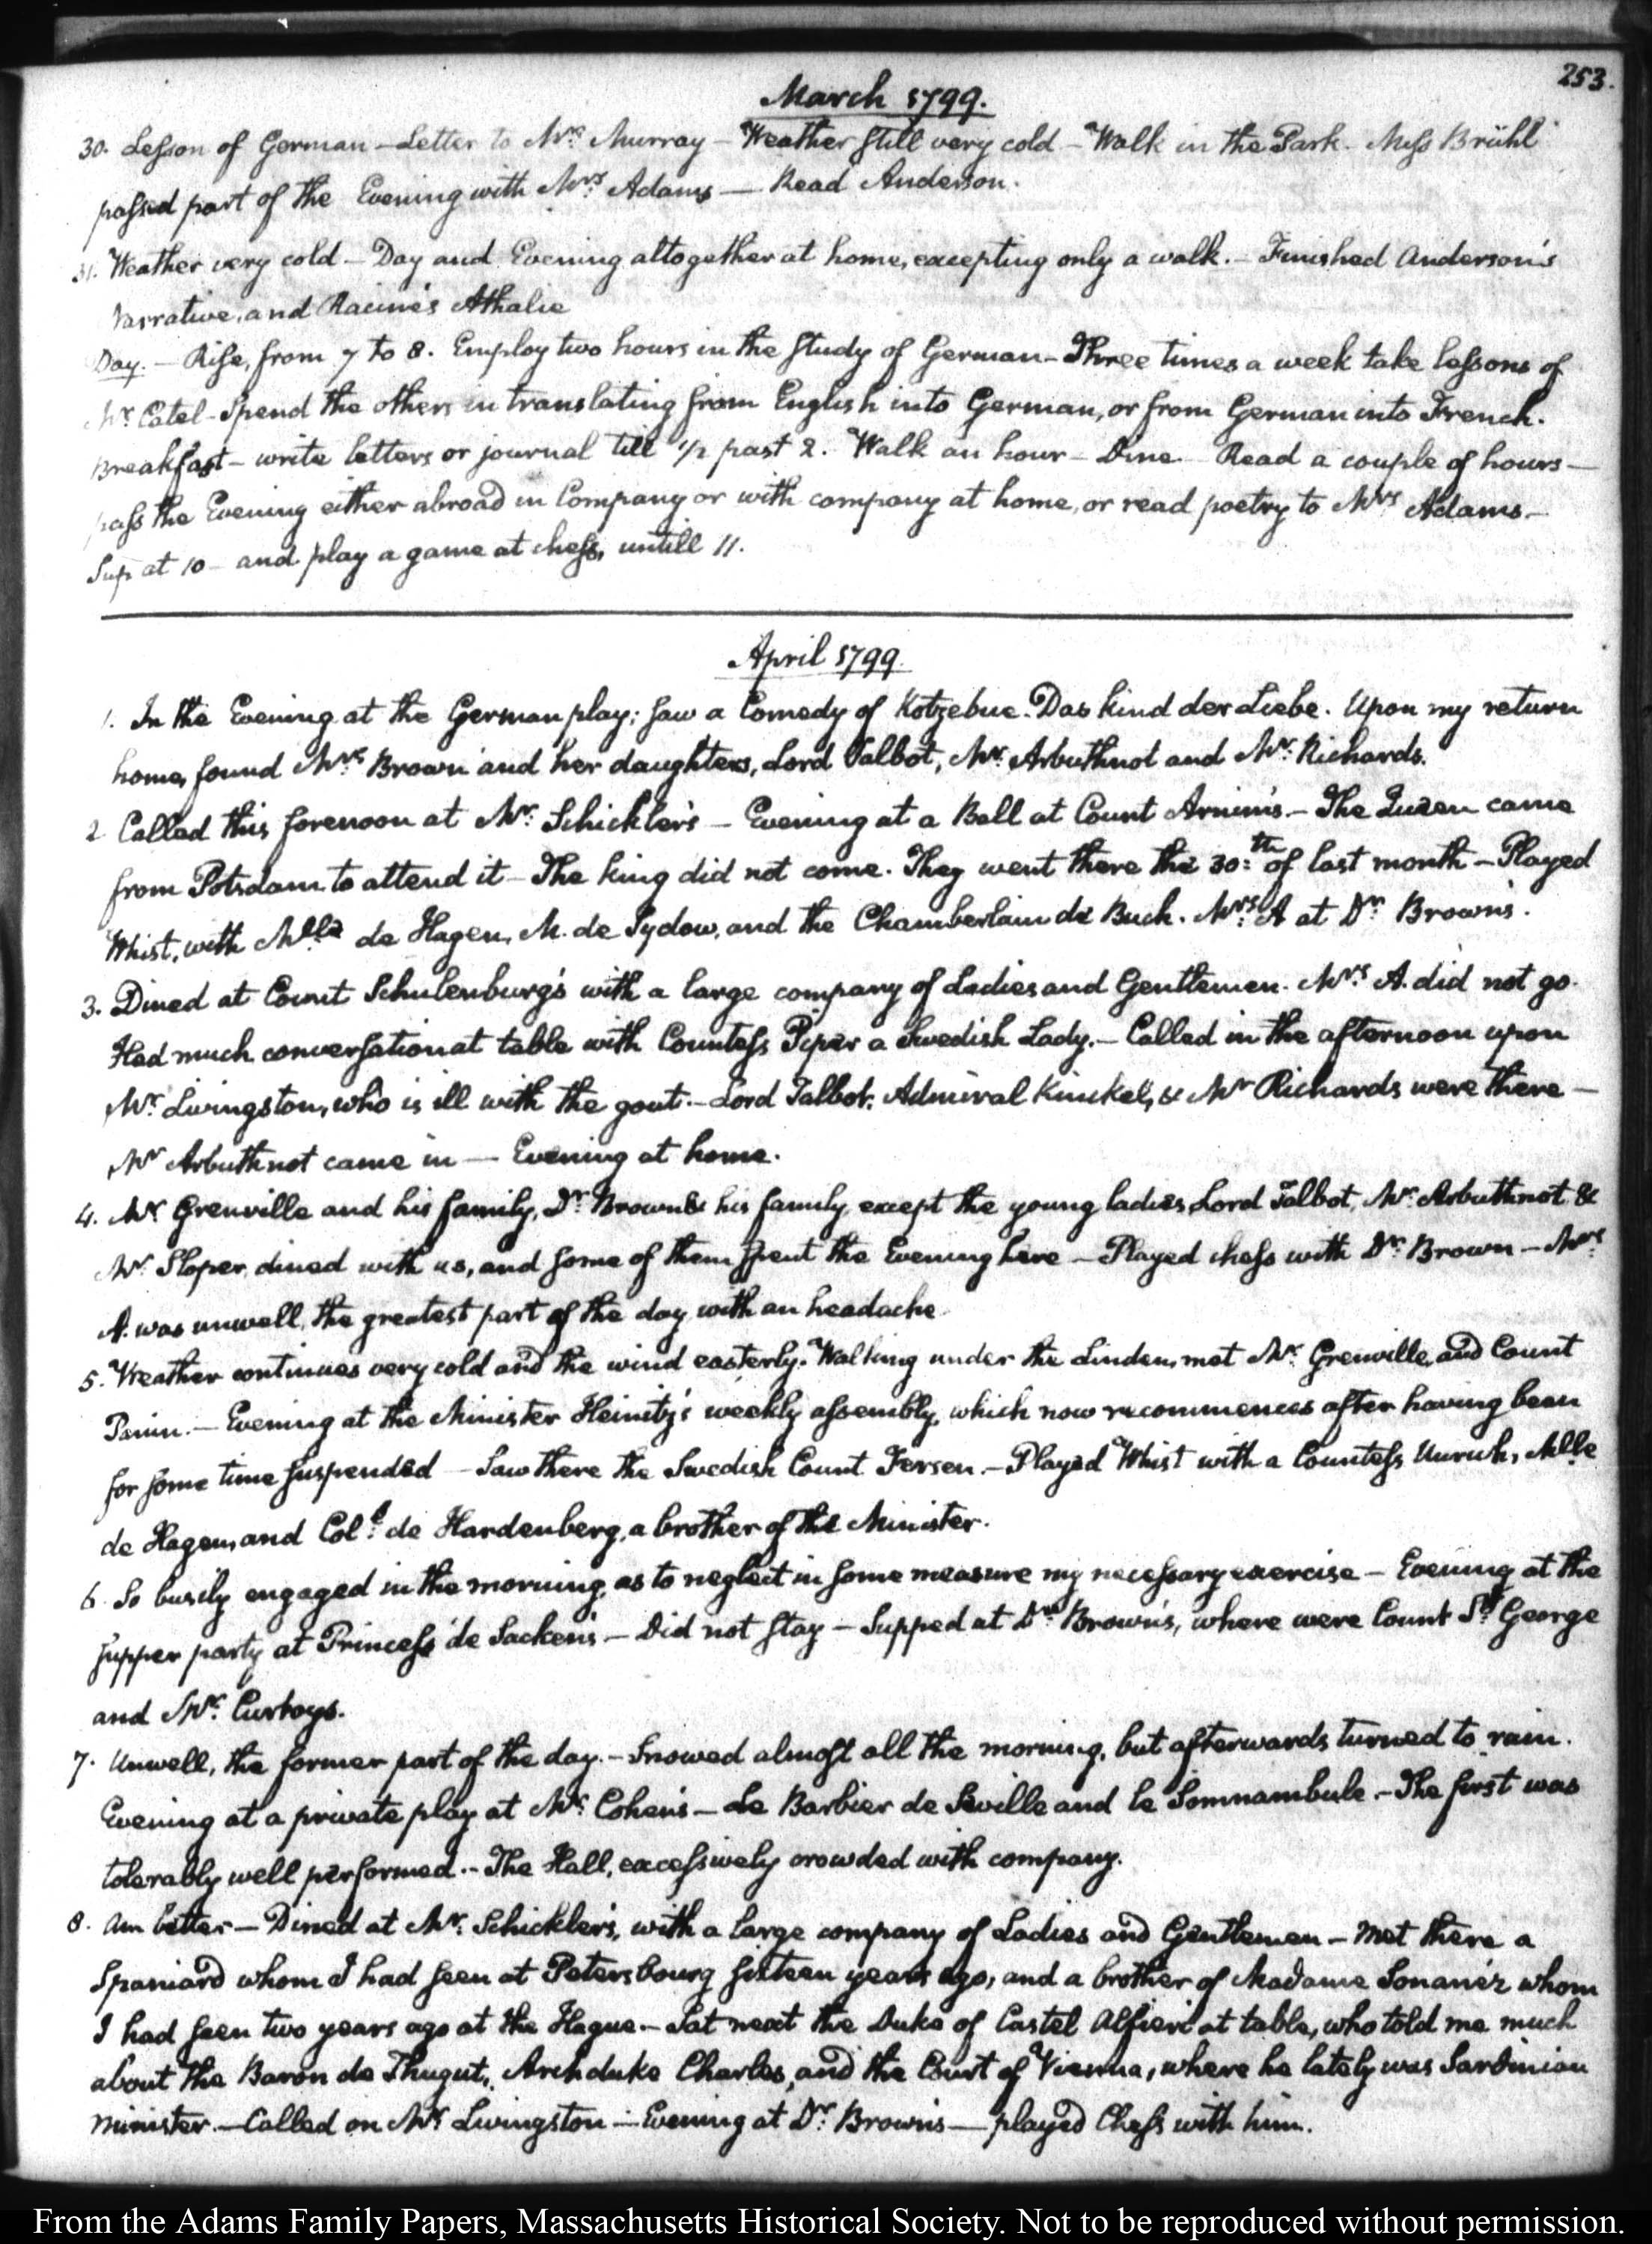 253.
March 1799.
30. Lesson of German – Letter to Mr. Murray – Weather still very cold – Walk in the Park. Miss Brühl
passed part of the Evening with Mrs. Adams — Read Anderson.
31. Weather very cold – Day and Evening altogether at home, excepting only a walk. – Finished Anderson's
Narrative, and Racine's Athalie
Day. – Rise, from 7 to 8. Employ two hours in the study of German – Three times a week take lessons of
Mr. Catel – Spend the others in translating from English into German, or from German into French.
Breakfast – write letters or journal till 1/2 past 2. Walk an hour – Dine – Read a couple of hours –
pass the Evening either abroad in Company or with company at home, or read poetry to Mrs. Adams. –
Sup at 10 – and play a game at chess, untill 11.
April 1799.
1. In the Evening at the German play; saw a Comedy of Kotzebue. Das Kind der Liebe. Upon my return
home, found Mrs. Brown and her daughters, Lord Talbot, Mr. Arbuthnot and Mr. Richards.
2 Called this forenoon at Mr. Schickler's – Evening at a Ball at Count Arnim's. – The Queen came
from Potsdam to attend it – The King did not come. They went there the 30:th of last month – Played
Whist, with Mlle de Hagen, M. de Sydow, and the Chamberlain de Buch. Mrs. A at Dr. Brown's.
3. Dined at Count Schulenburg's with a large company of Ladies and Gentlemen. Mrs. A. did not go.
Had much conversation at table with Countess Piper a Swedish Lady. – Called in the afternoon upon
Mr. Livingston, who is ill with the gout. – Lord Talbot, Admiral Kinckel, & Mr Richards were there –
Mr Arbuthnot came in — Evening at home.
4. Mr. Grenville and his family, Dr. Brown & his family except the young ladies, Lord Talbot, Mr. Arbuthnot &
Mr. Sloper, dined with us, and some of them spent the Evening here – Played chess with Dr. Brown – Mrs.
A. was unwell, the greatest part of the day with an headache.
5. Weather continues very cold and the wind easterly. Walking under the Linden, met Mr. Grenville, and Count
Panin. – Evening at the Minister Heinitz's weekly assembly, which now recommences after having been
for some time suspended – Saw there the Swedish Count Fersen. – Played Whist with a Countess Unruh, Mlle
de Hagen, and Col:l de Hardenberg, a brother of the Minister.
6. So busily engaged in the morning, as to neglect in some measure my necessary exercise – Evening at the
supper party at Princess de Sacken's – Did not stay – Supped at Dr. Brown's, where were Count St. George
and Mr. Curtoys.
7. Unwell, the former part of the day. – Snowed almost all the morning, but afterwards turned to rain.
Evening at a private play at Mr. Cohen's – Le Barbier de Seville and le Somnambule. – The first was
tolerably well performed. – The Hall, excessively crowded with company.
8. Am better – Dined at Mr. Schickler's, with a large company of Ladies and Gentlemen – met there a
Spaniard whom I had seen at Petersbourg sixteen years ago; and a brother of Madame whom
I had seen two years ago at the Hague. – Sat next the Duke of Castel Alfieri at table, who told me much
about the Baron de Thugut, Archduke Charles, and the Court of Vienna, where he lately was Sardinian
minister. – Called on Mr. Livingston – Evening at Dr. Brown's — played Chess with him.
From the Adams Family Papers, Massachusetts Historical Society. Not to be reproduced without permission.